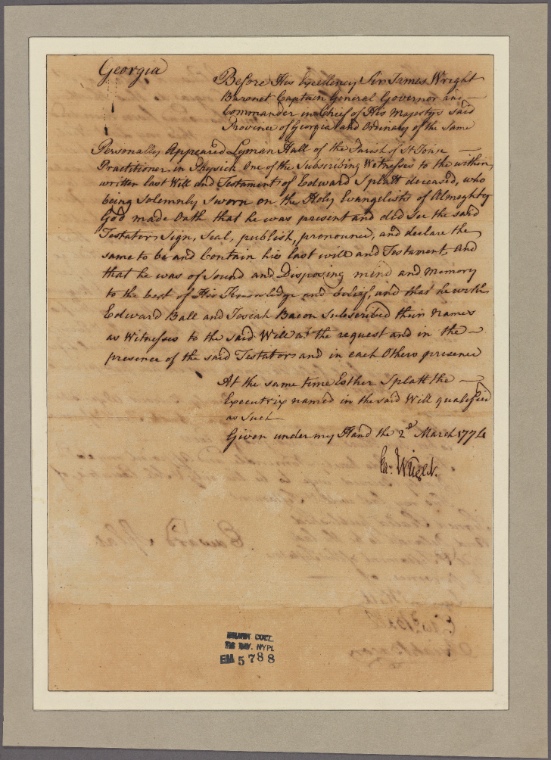 Georgia
Before His Excellency Sir James Wright
Baronet Captain General Governor and
Commander in Chief of His Majestys said
Province of Georgia and Ordinary of the Same
Personally Appeared Lyman Hall of the Parish of St John
Practitioner in Physick One of the Subscribing Witnesses to the within
written last Will and Testament of Edward Splatt deceased, who
being Solemnly Sworn on the Holy Evangelists of Almighty
God made Oath that he was present and did See the said
Testator Sign, Seal, publish, pronounce, and declare the
same to be and Contain his last will and Testament, And
that he was of Sound and Disposing mind and Memory
to the best of His Knowledge and belief, and that he with
Edward Ball and Josiah Bacon Subscribed their Names
as Witnesses to the said Will at the request and in the
presence of the said Testator and in each Others presence
At the same time Esther Splatt the
Executrix named in the said Will qualified
as Such
Given under my Hand the 2d March 1774
Ja: Wright.
EM 5788